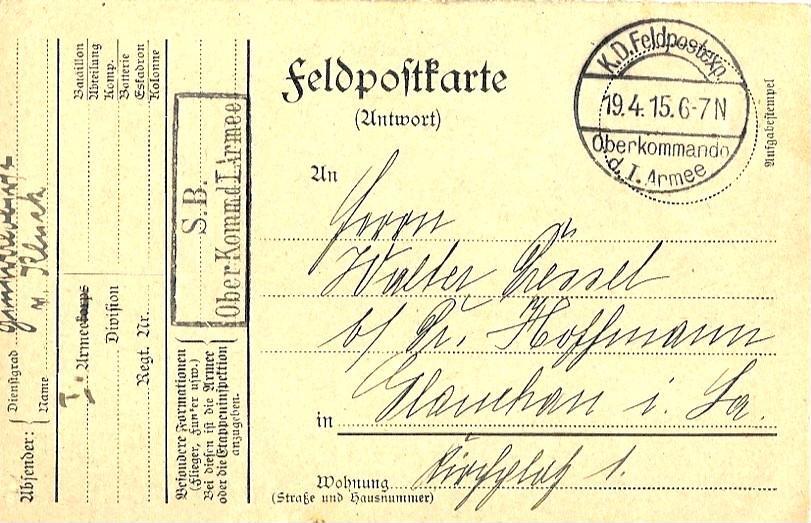 Feldpostkarte
(Antwort)
K.D.Feldpostexp.
19.4.15.6-7N
Oberkommando
d. I. Armee
Aufgabestempel
An
Herrn
Walter
b/ Hoffmann
in Glauchau i. Sa.
Wohnung Kirchplatz 1.
(Straße und Hausnummer)
S.B.
OberKommd I. Armee
Absender:
Dienstgrad
Name v. Kluck
Bataillon
Abteilung
Komp.
Batterie
Eskadron
Kolonne
I. Armeekorps
Division
Regt. Nr.
Besondere Formationen
(Flieger, Funker usw.)
Bei diesen ist die Armee
oder die Etappeninspektion
anzugeben.